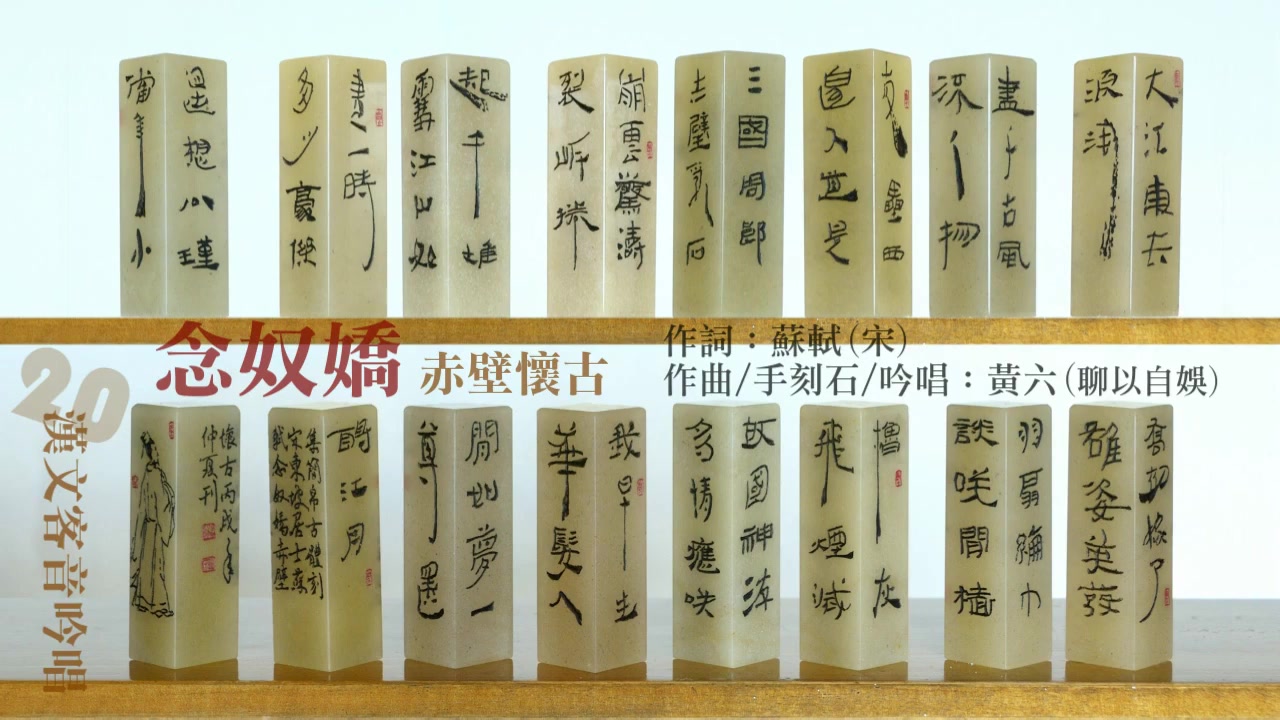 念奴嬌 赤壁懷古
作詞：蘇軾(宋)
作曲/手刻石/吟唱：黃六(聊以自娛)
20
漢文客音吟唱
大江東去
浪淘
盡千古風
流人物
故壘西
邊人道是
三國周郎
赤壁亂石
崩雲驚濤
裂岸捲
起千堆
雪江山如
畫一時
多少豪傑
遙想公瑾
當年小
喬初嫁了
雄姿英發
羽扇綸巾
談笑間檣
櫓灰
飛煙滅
故國神遊
多情應笑
我早生
華髮人
間如夢一
尊還
酹江月
集簡帛古體刻
宋東坡居士蘇
軾念奴嬌赤壁
懷古丙戌年
仲夏刊